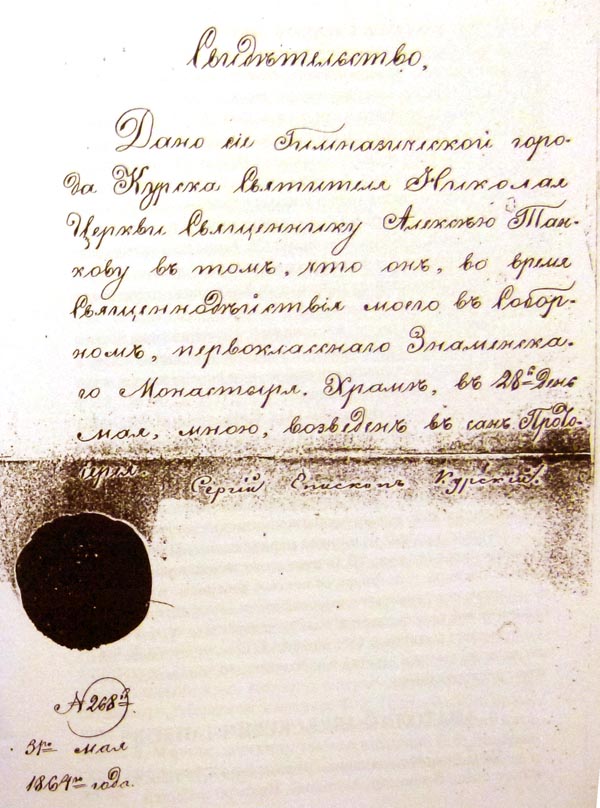 Свидѣтельство,
Дано сіе Гимназической горо-
да Курска Святителя Николая
Церкви Священнику Алексѣю Тан-
кову въ томъ, что онъ, во время
Священнодѣйствія моего въ Собор-
номъ, первокласснаго Знаменска-
го Монастыря. Храмѣ, въ 28й день
мая, мною, возведенъ въ санъ Прото-
іерея.
Сергій Епископъ Курскій.
№ 268й.
31го мая
1864го года.